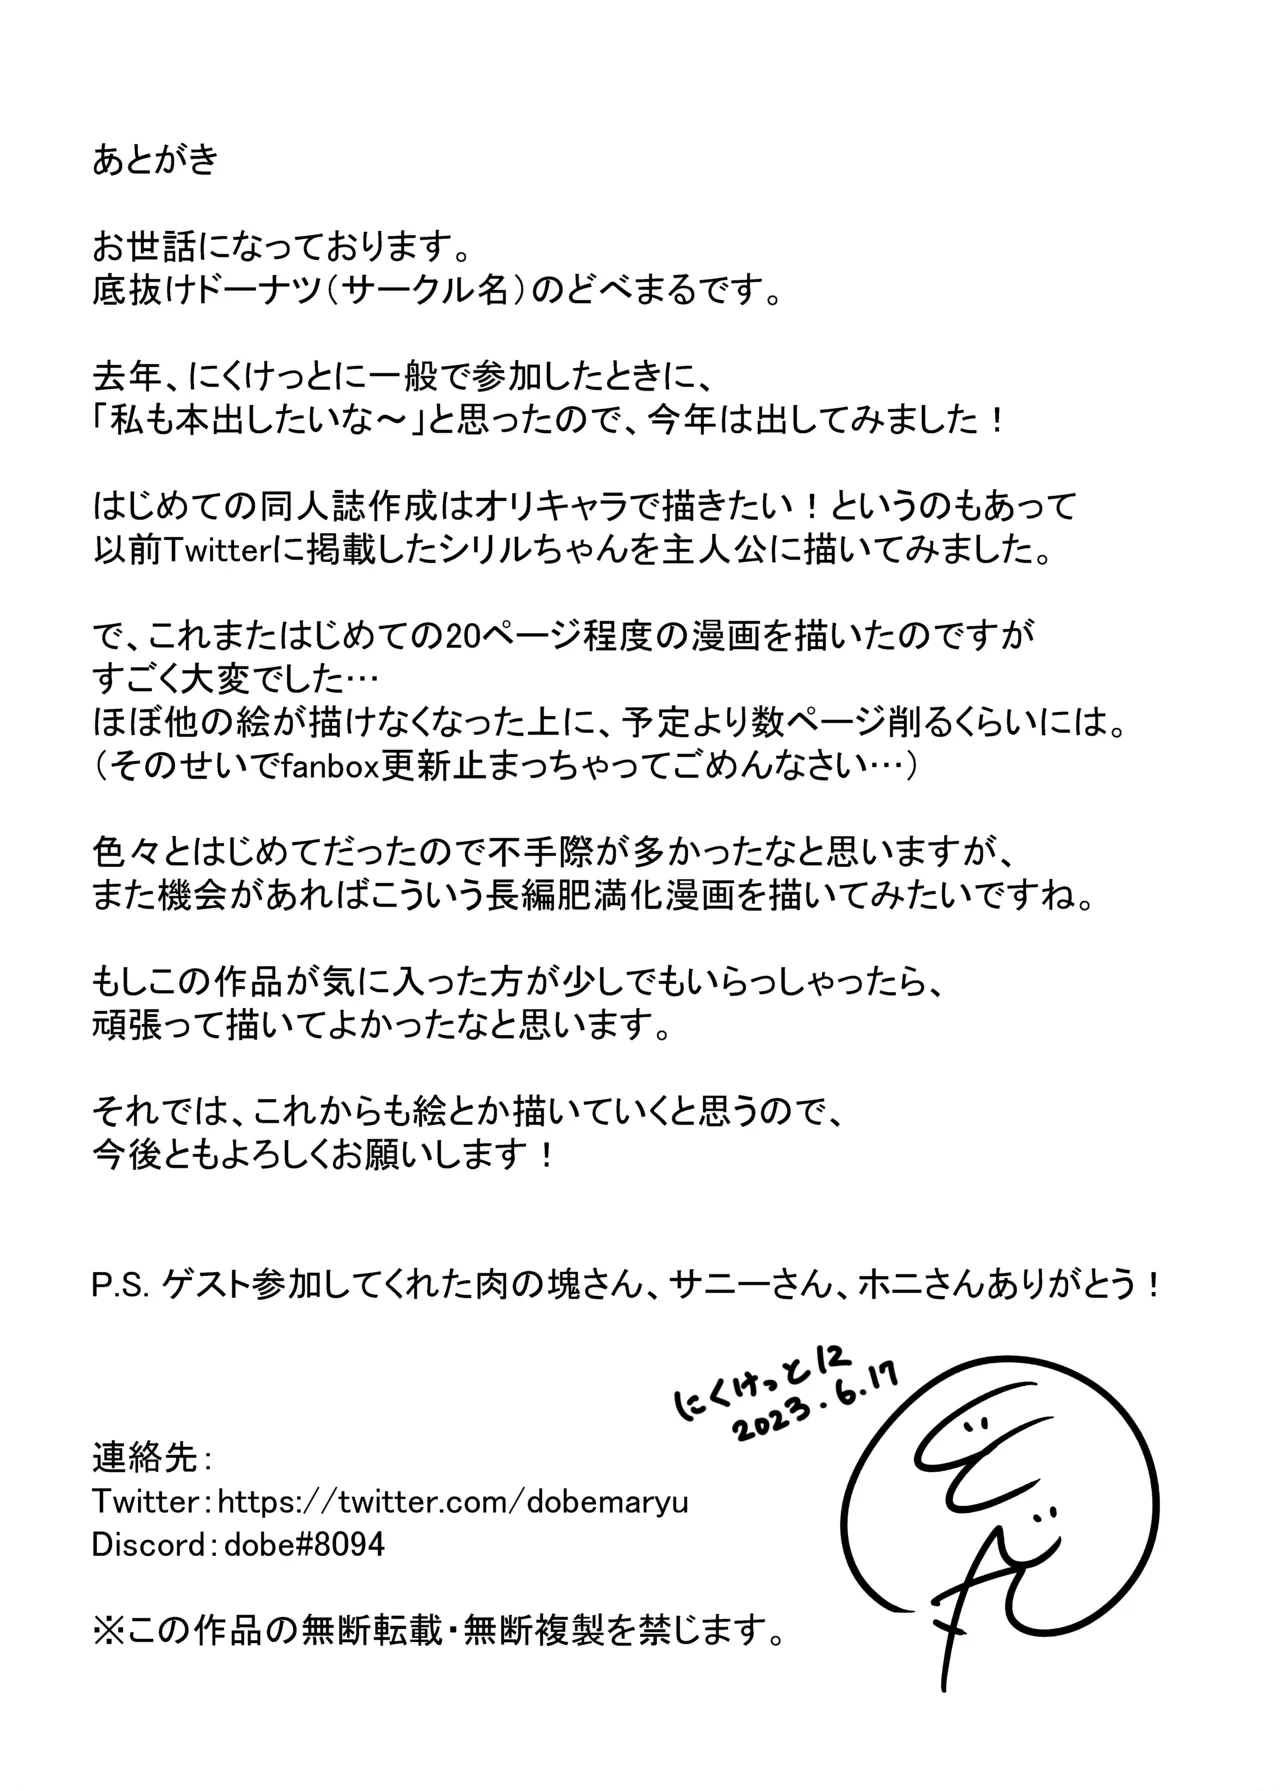 あとがき
お世話になっております。
底抜けドーナツ（サークル名）のどべまるです。
去年、にくけっとに一般で参加したときに、
「私も本出したいな～」と思ったので、今年は出してみました！
はじめての同人誌作成はオリキャラで描きたい！というのもあって
以前Twitterに掲載したシリルちゃんを主人公に描いてみました。
で、これまたはじめての20ページ程度の漫画を描いたのですが
すごく大変でした…
ほぼ他の絵が描けなくなった上に、予定より数ページ削るくらいには。
（そのせいでfanbox更新止まっちゃってごめんなさい…）
色々とはじめてだったので不手際が多かったなと思いますが、
また機会があればこういう長編肥満化漫画を描いてみたいですね。
もしこの作品が気に入った方が少しでもいらっしゃったら、
頑張って描いてよかったなと思います。
それでは、これからも絵とか描いていくと思うので、
今後ともよろしくお願いします！
P.S. ゲスト参加してくれた肉の塊さん、サニーさん、ホニさんありがとう！
にくけっと12
2023.6.17
連絡先：
Twitter：https://twitter.com/dobemaryu
Discord：dobe#8094
※この作品の無断転載・無断複製を禁じます。